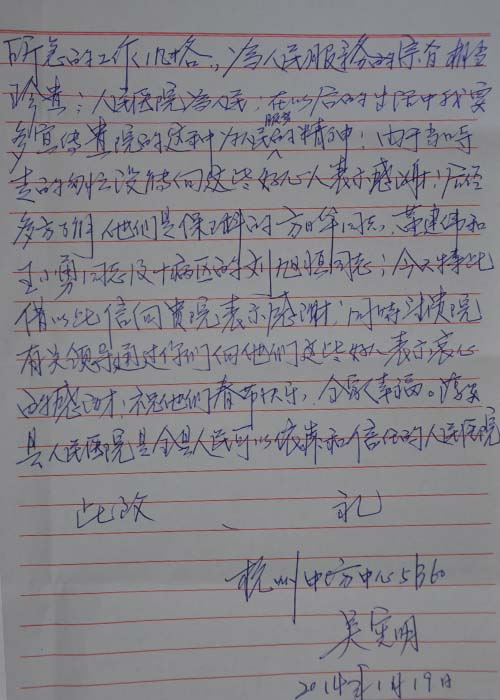 所急的工作风格,为人民服务的宗旨相当
珍贵;人民医院为人民,在以后的生活中我要
多宣传贵院的这种为人民服务的精神!由于当时
走的匆忙没能向这些好心人表示感谢;后经
多方了解他们是保卫科的方日华同志、建伟和
王小勇同志及十病区的刘旭恒同志;今天特此
借以此信向贵院表示感谢;同时请贵院
有关领导通过你们向他们这些好人表示衷心
的感谢;祝他们春节快乐,全家幸福。淳安
县人民医院是全县人民可以依靠和信任的人民医院
此致、礼
杭州中方中心5B60
吴宪明
2014年1月19日